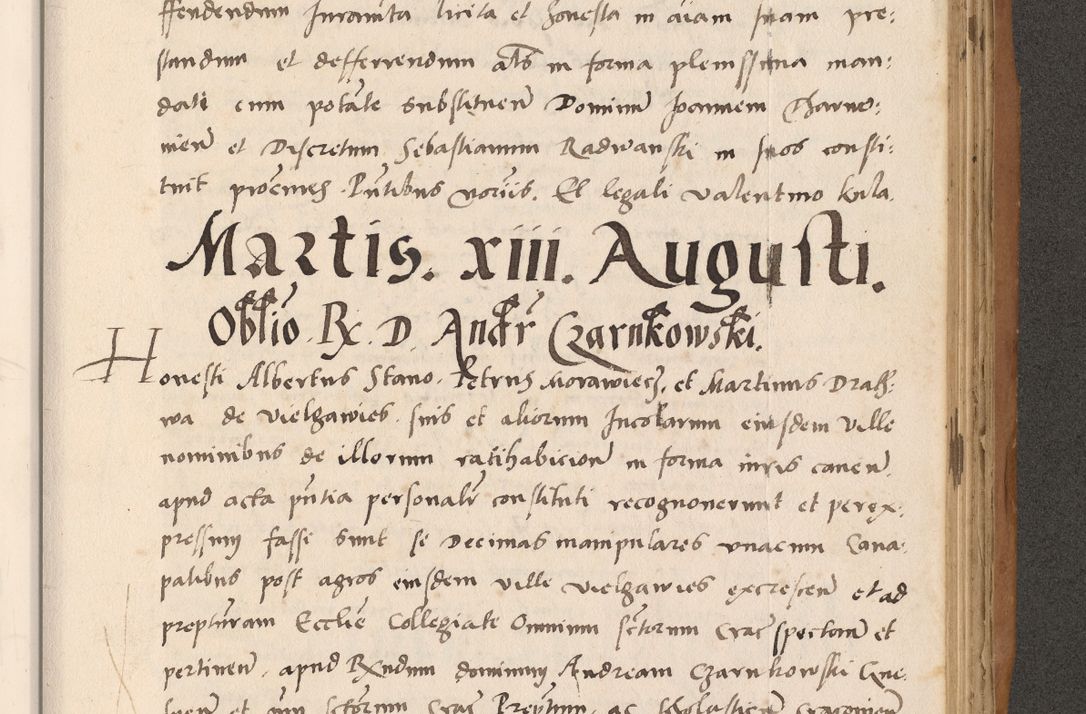 ffendendum Juramta licita et honesta in aiam suam pre:
standum et defferrendum als in forma plenissima man:
dati cum potate substituen Dominum Joannem Charno:
nien et Discretum Sebastianum Radwanski in suos consti:
tuit procures. Pntibus notis. Et legali Valentino Kula.
Martis. xiii. Augusti.
Obblio. Rx. D. Andr Czarnkowski.
Honesti Albertus Stano. Petrus Morawiecz. et Martinus Drath:
wa de Vielgawies. suis et aliorum Incolarum eiusdem Ville
nominibus de illorum ratihabicion in forma iuris canen
apud acta pntia personalr constituti recognouerunt et perex:
pressum fassi sunt se Decimas manipulares vnacum Cana:
palibus post agros eiusdem ville vielgawies excrescen et ad
prepturam Ecclie Collegiate Omnium sctorum Crac spectan et
pertinen. apud Rxndum dominum Andream Czarnkowski Gne:
et um sctorum Crac Preptum. ac scholasticen Cracovien